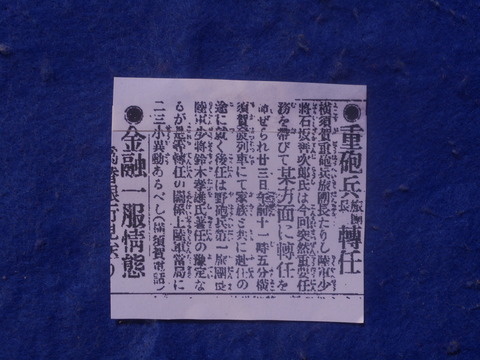 ●重砲兵旅團長轉任
横須賀重砲兵旅團長たりし陸軍少
將石坂善次郎氏は今回突然重要任
務を帶びて某方面に轉任を
命ぜられ廿三日午前十一時五分横
須賀發列車にて家族と共に赴任の
途に就く後任は野砲兵第一旅團長
陸軍少將鈴木孝雄氏着任の豫定な
るが是等轉任の關係上陸軍當局に
二三小異動あるべし(横須賀電話)
●金融一服情態